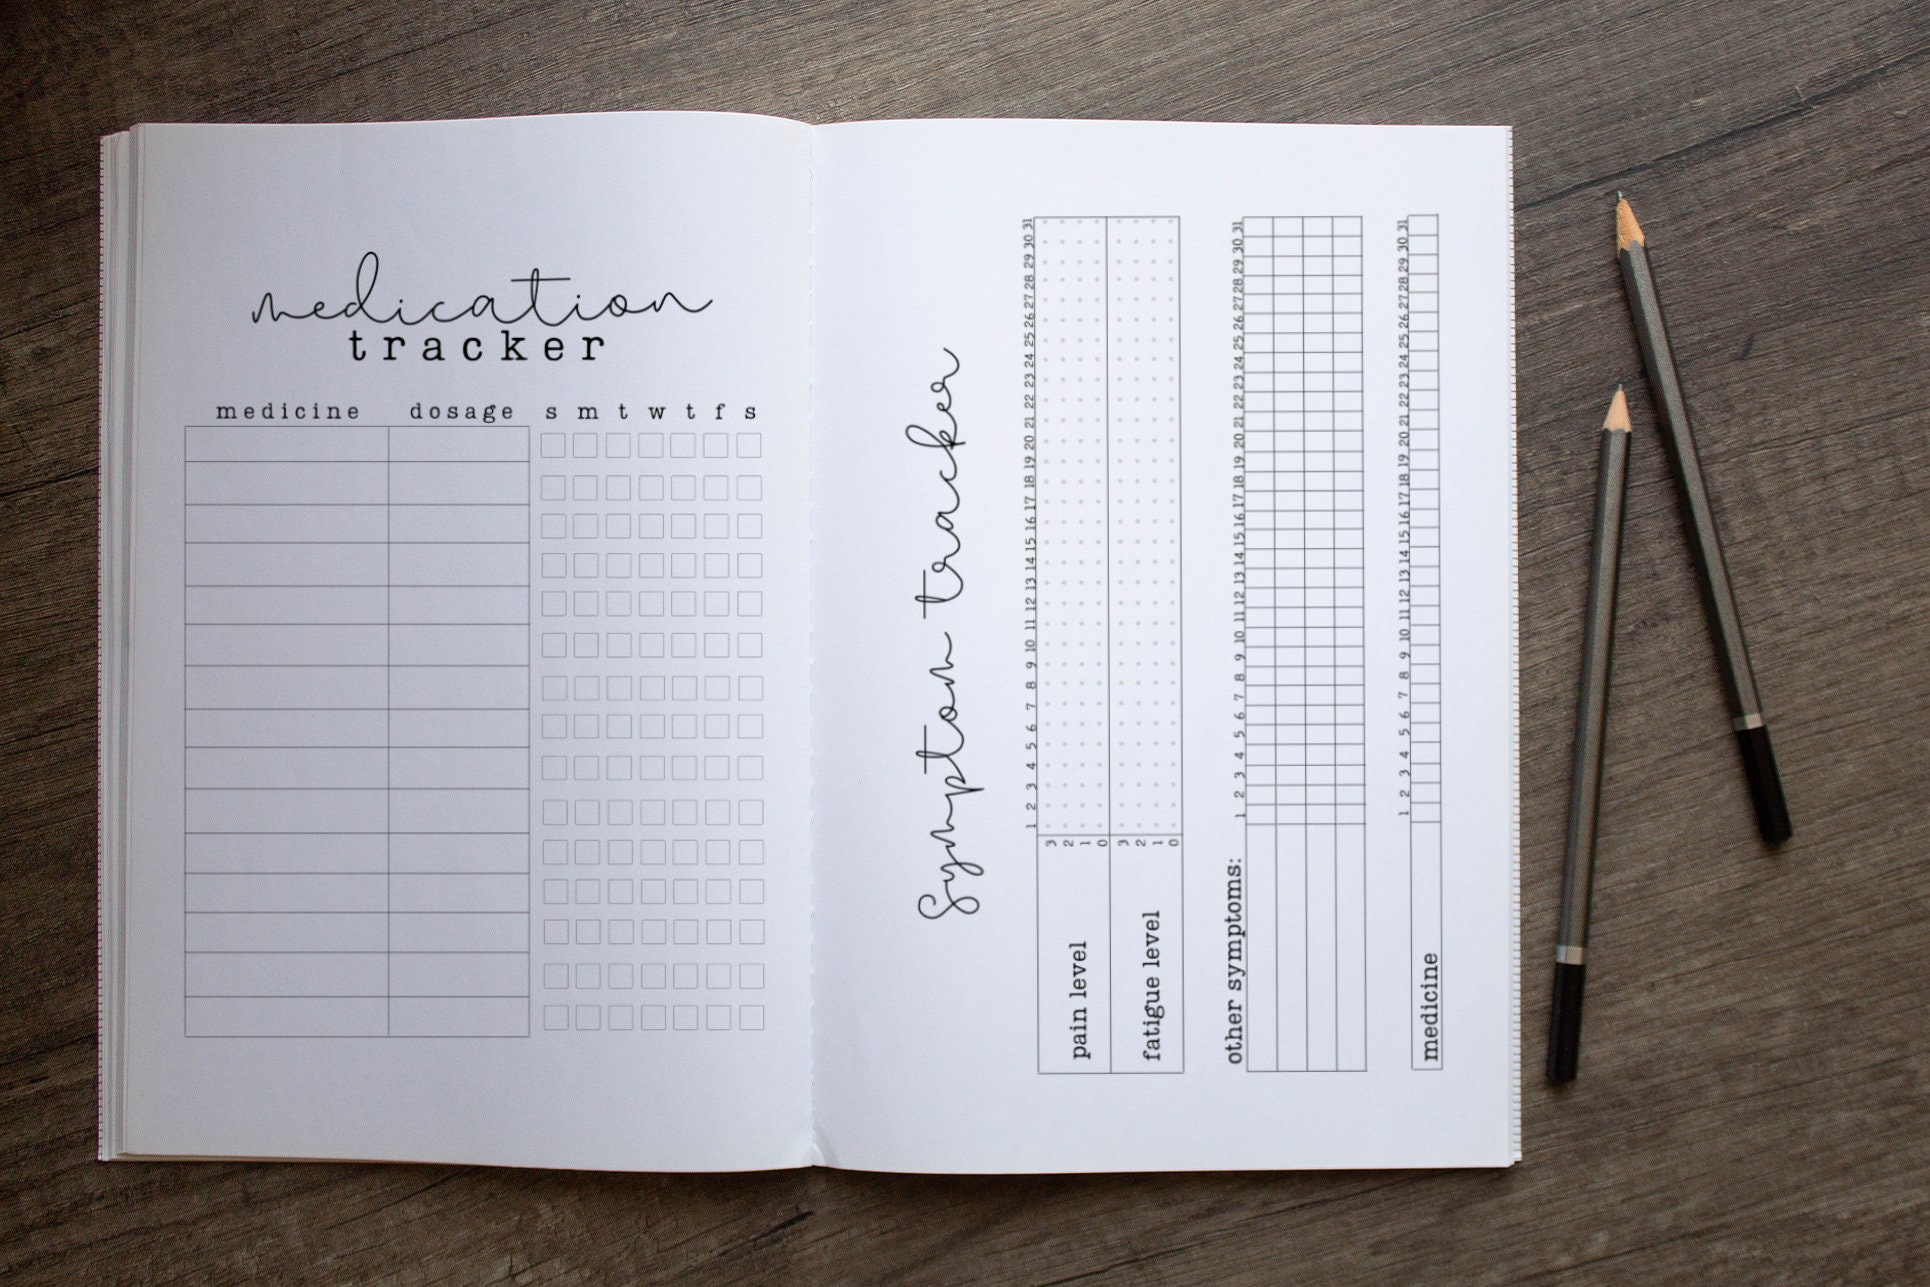 medication
tracker
medicine dosage s m t w t f s
Symptom tracker
1 2 3 4 5 6 7 8 9 10 11 12 13 14 15 16 17 18 19 20 21 22 23 24 25 26 27 28 29 30 31
3
2
pain level
1
0
3
2
fatigue level
1
0
other symptoms:
1 2 3 4 5 6 7 8 9 10 11 12 13 14 15 16 17 18 19 20 21 22 23 24 25 26 27 28 29 30 31
1 2 3 4 5 6 7 8 9 10 11 12 13 14 15 16 17 18 19 20 21 22 23 24 25 26 27 28 29 30 31
medicine